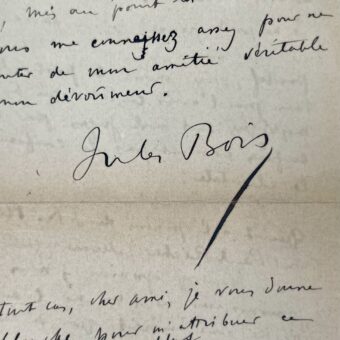 , mès au point
vous me connaissez assez pour ne
douter de mon amitié véritable
mon dévoûment.
Jules Bois
tout cas, cher ami, je vous donne
pour m'attribuer ce